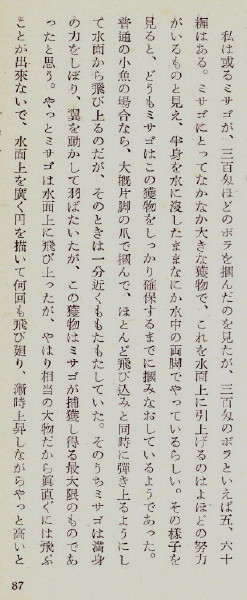 私は或るミサゴが、三百匁ほどのボラを摑んだのを見たが、三百匁のボラといえば五、六十
糎はある。ミサゴにとってなかなか大きな獲物で、これを水面上に引上げるのはよほどの努力
がいるものと見え、半身を水に浸したままなにか水中の両脚でやっているらしい。その様子を
見ると、どうもミサゴはこの獲物をしっかり確保するまでに摑みなおしているようであった。
普通の小魚の場合なら、大概片脚の爪で摑んで、ほとんど飛び込みと同時に弾き上るようにし
て水面から飛び上るのだが、そのときは一分近くももたもたしていた。そのうちミサゴは満身
の力をしぼり、翼を動かして羽ばたいたが、この獲物はミサゴが捕獲し得る最大限のものであ
ったと思う。やっとミサゴは水面上に飛び上ったが、やはり相当の大物だから真直ぐには飛ぶ
ことが出來ないで、水面上を廣く円を描いて何回も飛び廻り、漸時上昇しながらやっと高いと
87